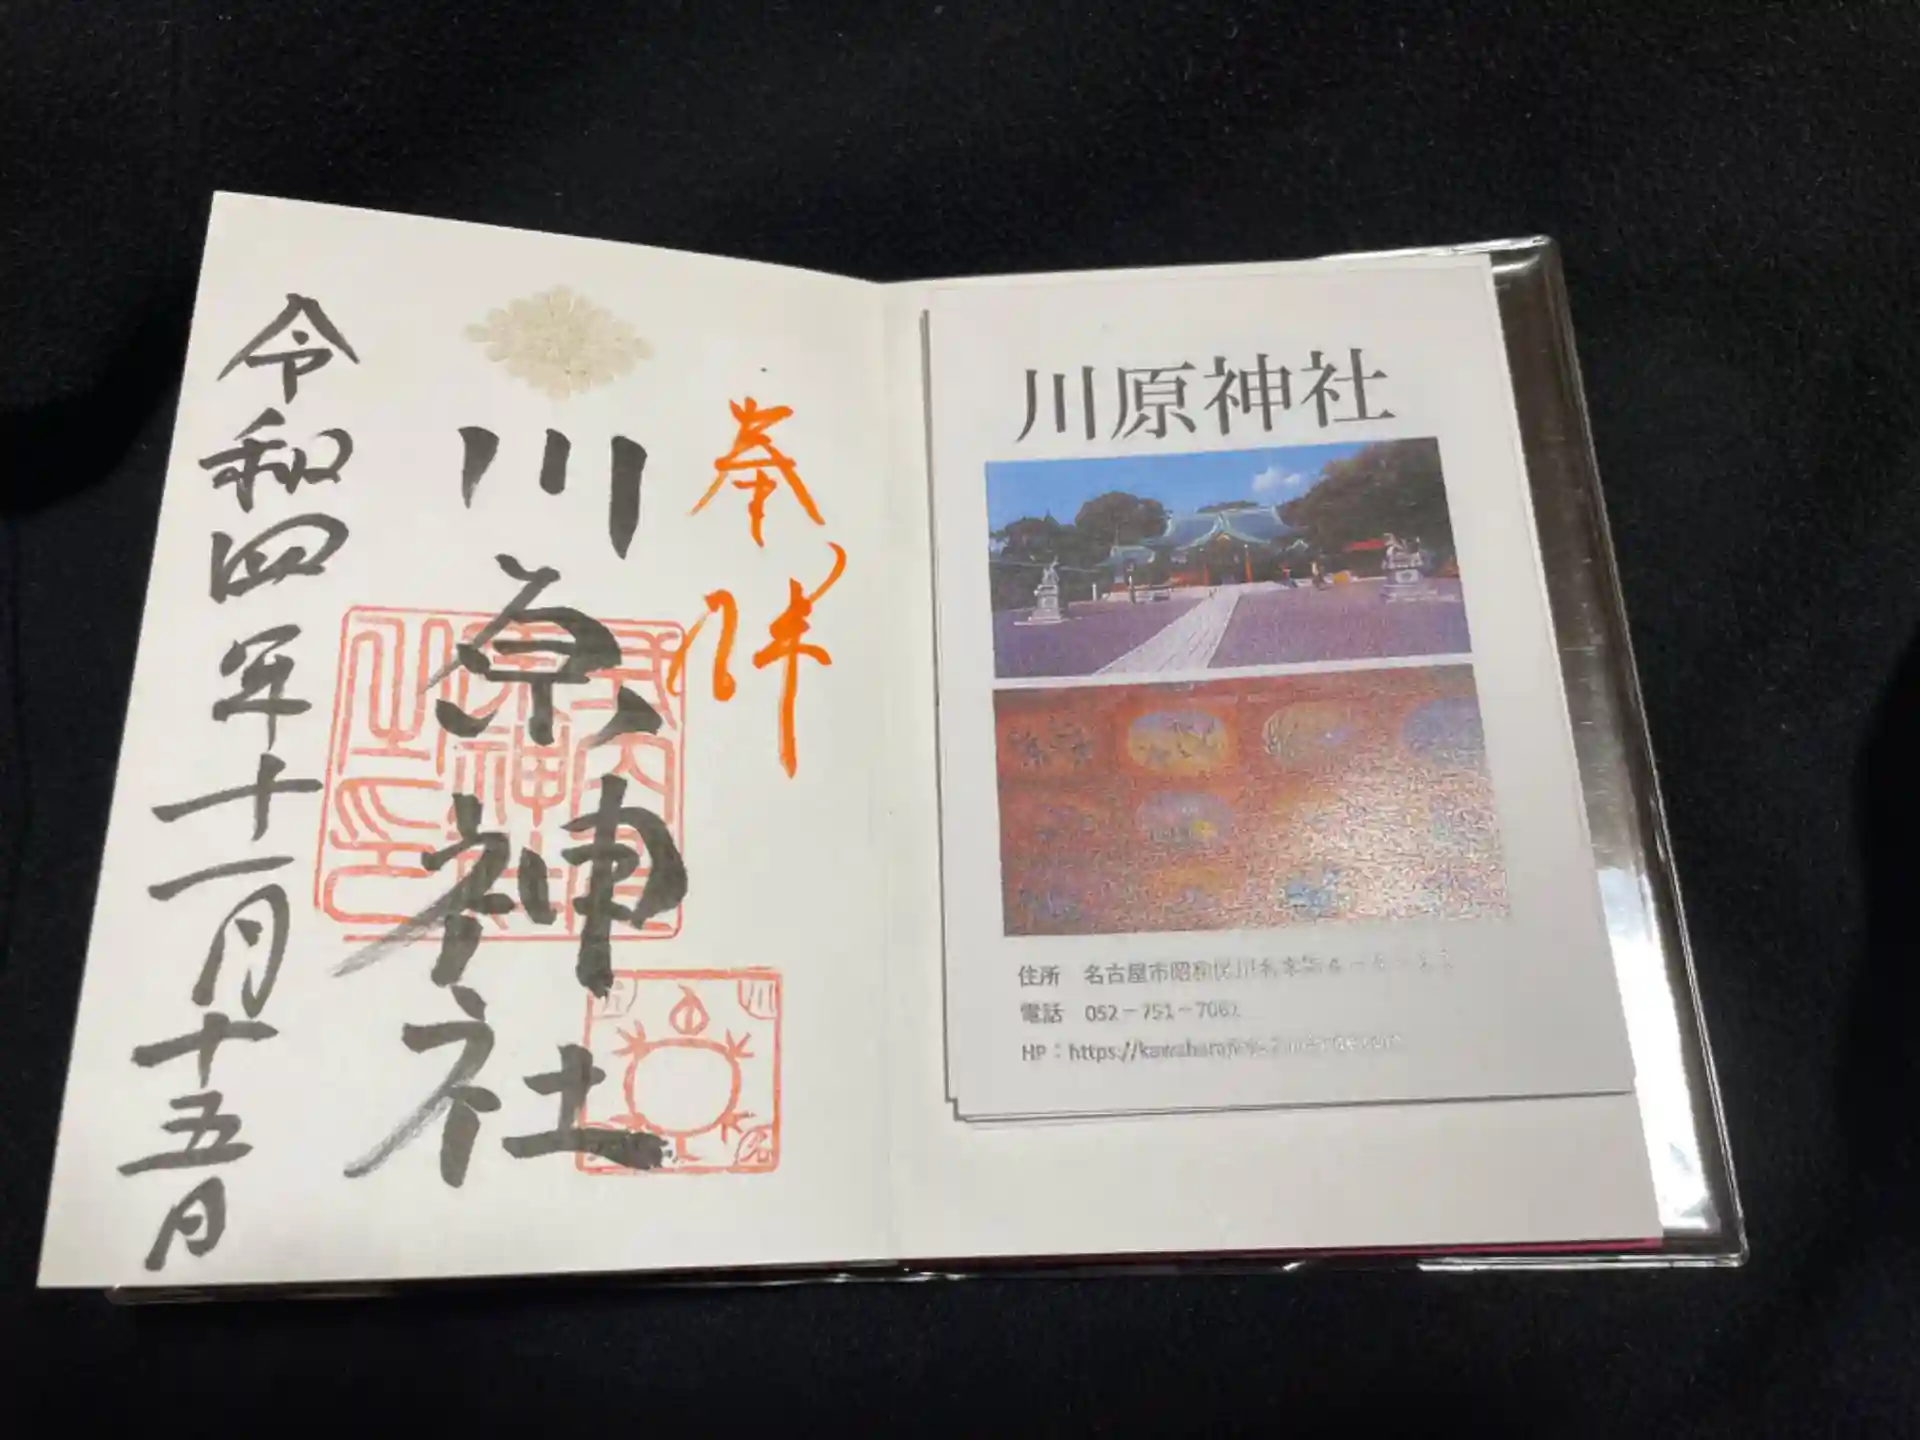 奉拝
川原神社
令和四年十一月十五日
川原神社
住所 名古屋市昭和区川名本町
電話 052-751-7061
HP：https://kawahara